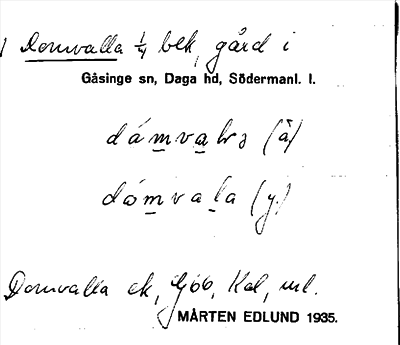 Domvalla ¼ blk, gård i
Gåsinge sn, Daga hd, Södermanl. l.
dámvalrs (å)
dómvala (y.)
Domvalla ek, Gbb, Kal, ml.
MÅRTEN EDLUND 1935.